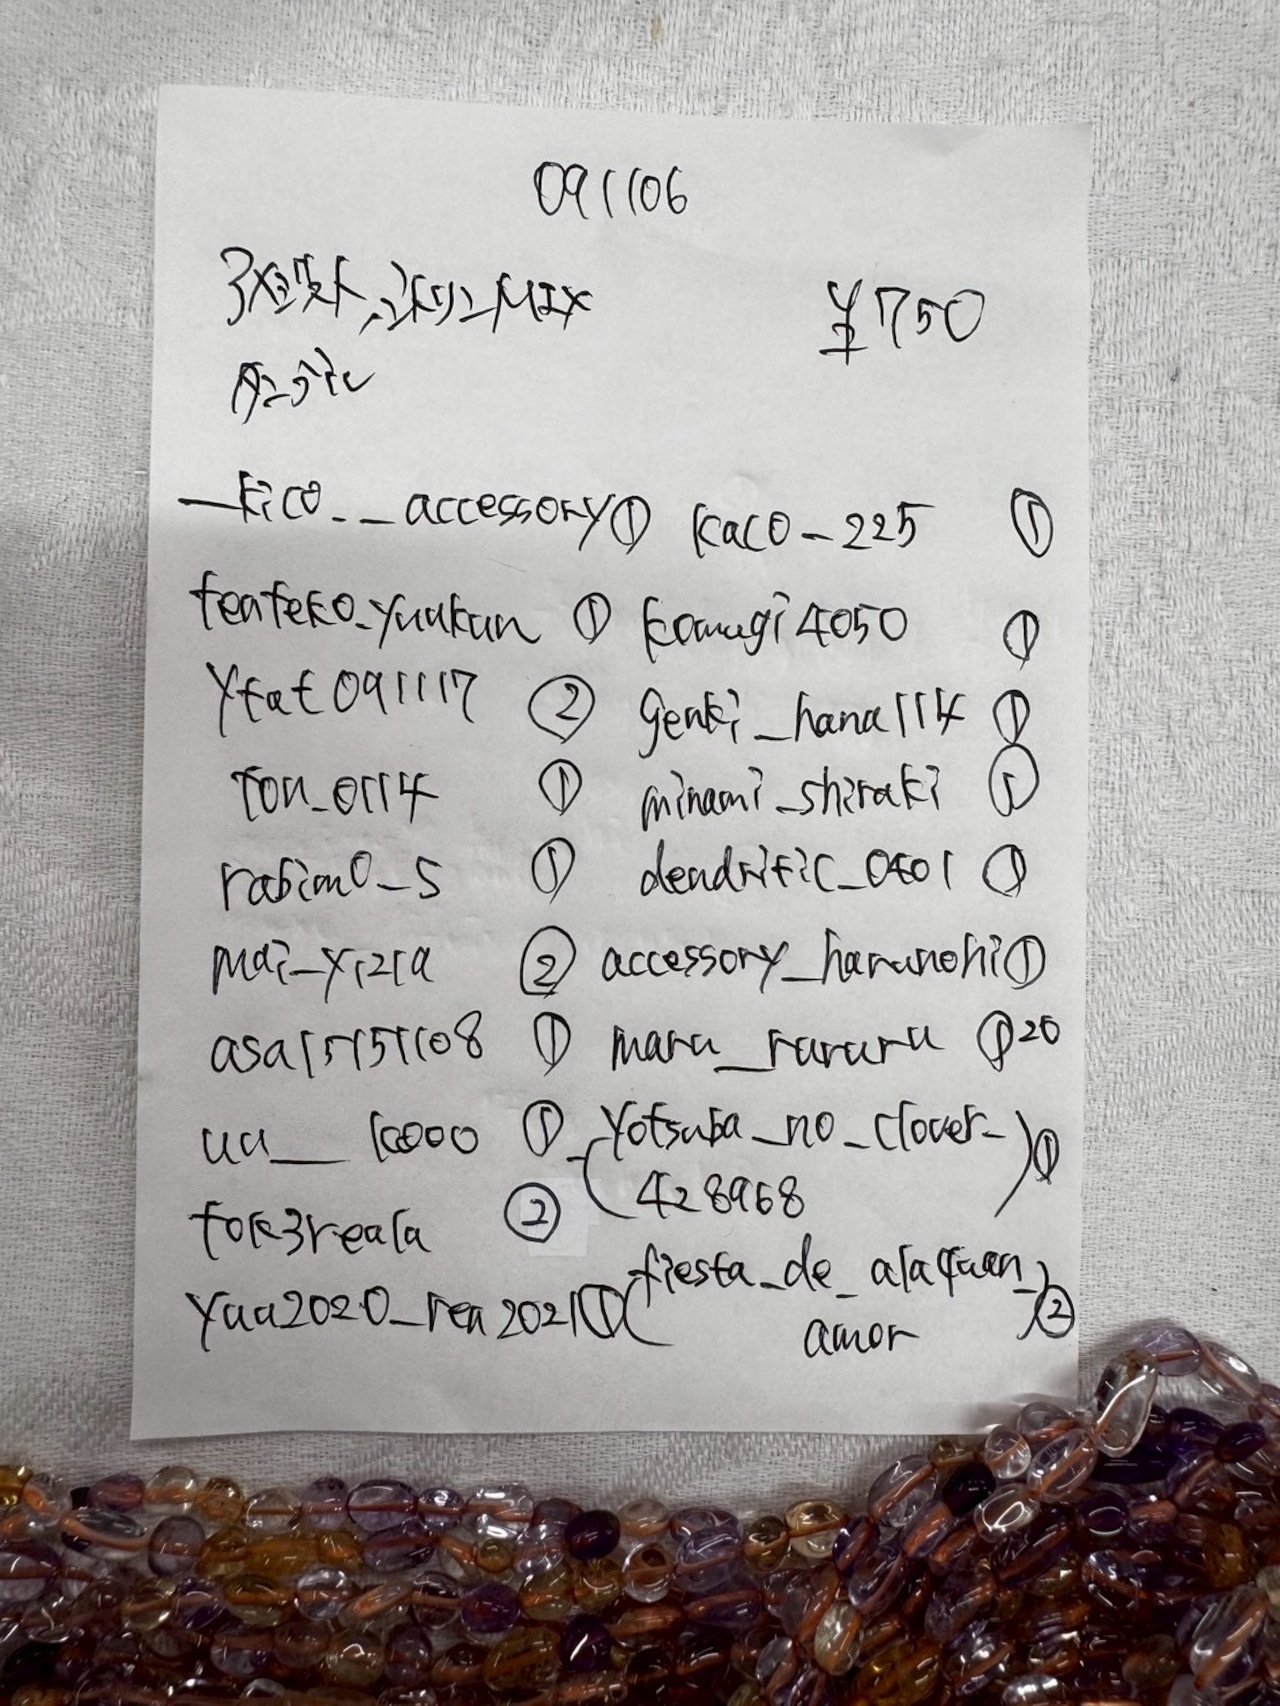 091106
アメジスト,シトリンMIX
タンブル
¥750
_kico.__accessory ①
teateko_yuukun ①
ytat091117 ②
ton_0114 ①
rabimo_s ①
mai_yizia ②
asa15151108 ①
uu__kooo ①
tok3reala ②
yuu2020_rea2021 ①
kaco_225 ①
komugi4050 ①
genki_hana114 ①
minami_shiraki ①
dendritic_0401 ①
accessory_harunohi ①
maru_raruru ① 20
(yotsuba_no_clover_
428968) ①
(fiesta_de_alaquan_
amor) ②